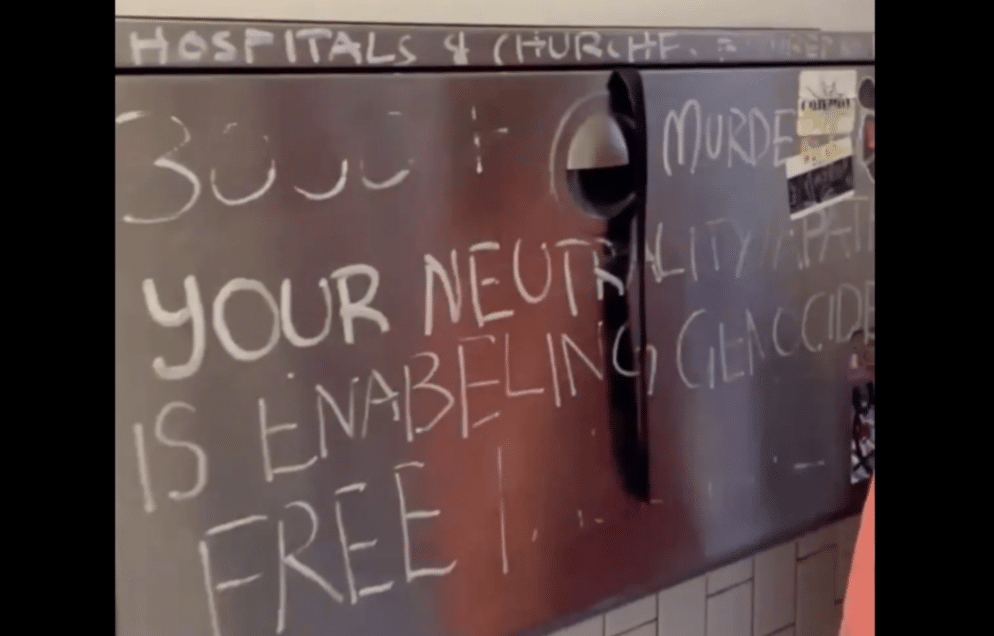 HOSPITALS & CHURCHE
3000+ MURDE
YOUR NEUTRALITY/APATH
IS ENABELING GENOCIDE
FREE